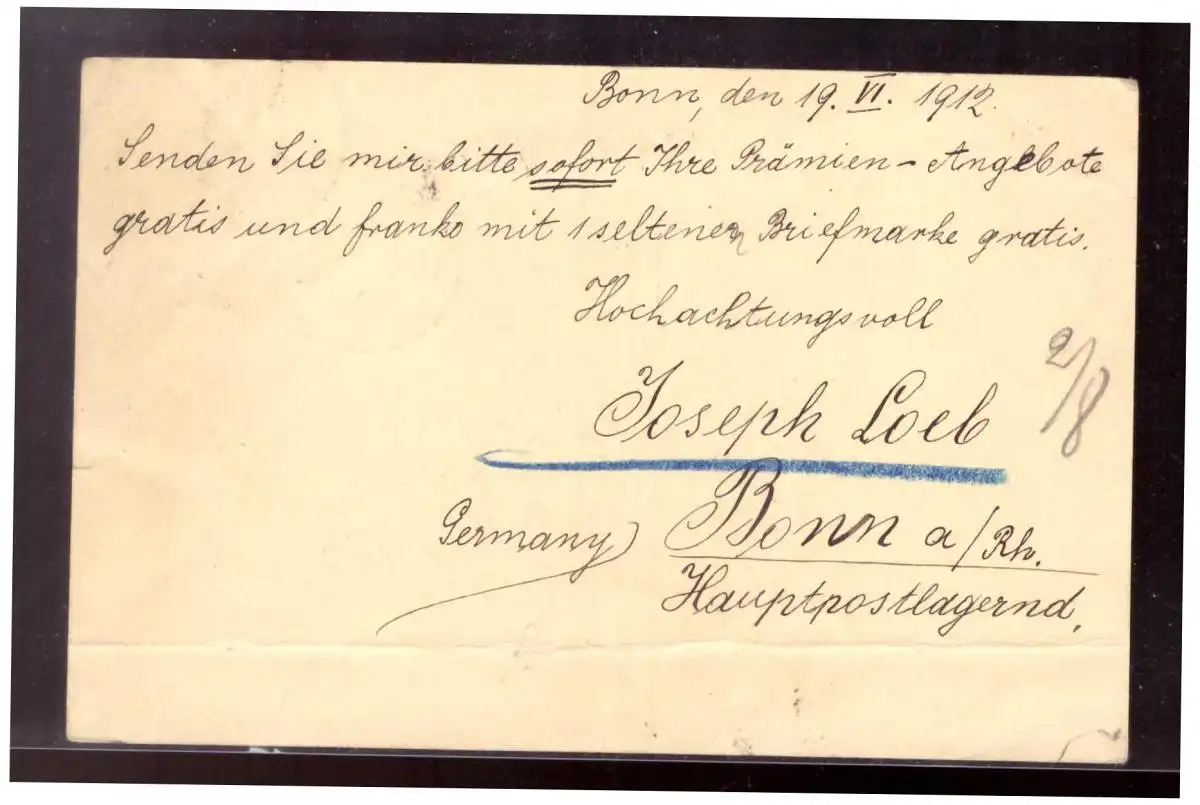 Bonn, den 19. VI. 1912.
Senden Sie mir bitte sofort Ihre Prämien-Angebote
gratis und franko mit 1 seltenen Briefmarke gratis.
Hochachtungsvoll
2/8
Joseph Loeb
Germany) Bonn a/Rh.
Hauptpostlagernd.